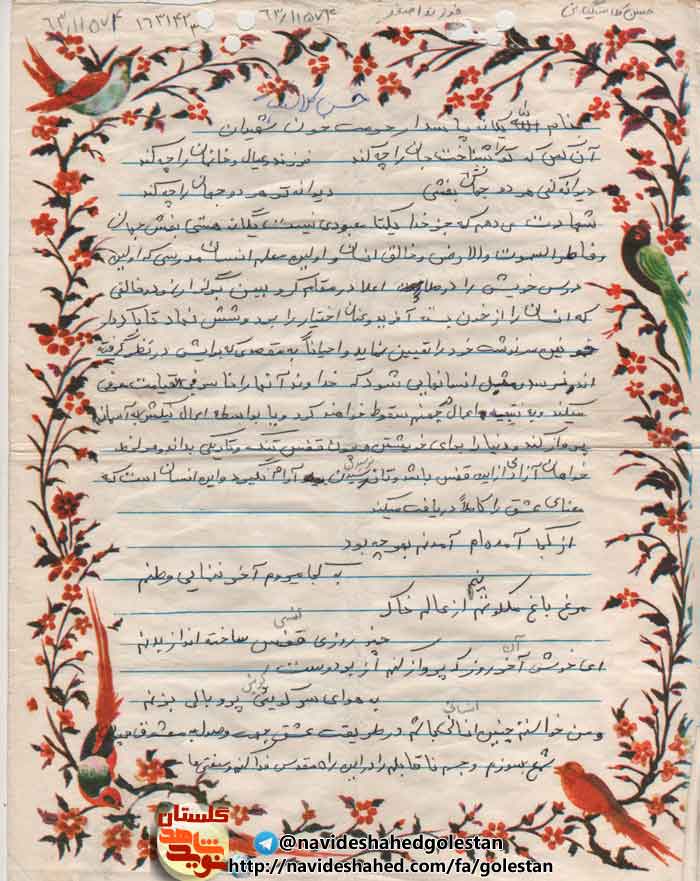 ۶۳/۱۱۵۷۴ ۱۶۳۱۴۲ ۶۳/۱۱۵۷۴ فرزند اصغر حسن
بنام الله یگانه پاسدار حرمت خون شهیدان
آن کس که تو را شناخت جان را چه کند فرزند و عیال و خانمان را چه کند
دیوانه کنی هر دو جهانش بخشی دیوانه تو هر دو جهان را چه کند
شهادت می دهم که جز خدا یکتا معبودی نیست یگانه هستی بخش جهان
و فاطر السموت والارض و خالق انسان و اولین معلم انسان مدرسی که اولین
درس خویش را در اعلا در مقام گرو خالقی
که انسان را از خون بسته آفرید و عنان اختیار را بدوشش نهاد تا پایدار
سرنوشت خود را تعیین نماید و احیاناً به مقصدی که برایش در نظر گرفته
اند نرسد مثل انسانهایی شود که خداوند آنها را ناسوفی القیامت معرفی
میکند و به نتیجه اعمال جهنم سقوط خواهند کرد و یا بواسطه اعمال نیکش به آسمانها
پرواز کند و دنیا را برای خویشتن چون قفس تنگ و تاریکی بداند و هر لحظه
خواهان آزادی از این قفس باشد و تا نرسیدن آرام نگیرد و این انسان است که
معنای عشق را کاملاً دریافت میکند
از کجا آمده ام آمدنم بهر چه بود
به کجا میروم آخر ننمایی وطنم
مرغ باغ ملکوتم نیم از عالم خاک
چند روزی قفسی ساخته اند از بدنم
ای خوش آن روز که پرواز کنم تا بر دوست
به هوای سر کویش پر و بالی بزنم
و من خواستم چنین انسانی باشم در طریقت عشق جهت وصل به معشوق
شمع بسوزم و جسم ناقابلم را در این راه مقدس فدا کنم و سختی ها
گلستان
نوید شاهد
@navideshahedgolestan
http://navideshahed.com/fa/golestan